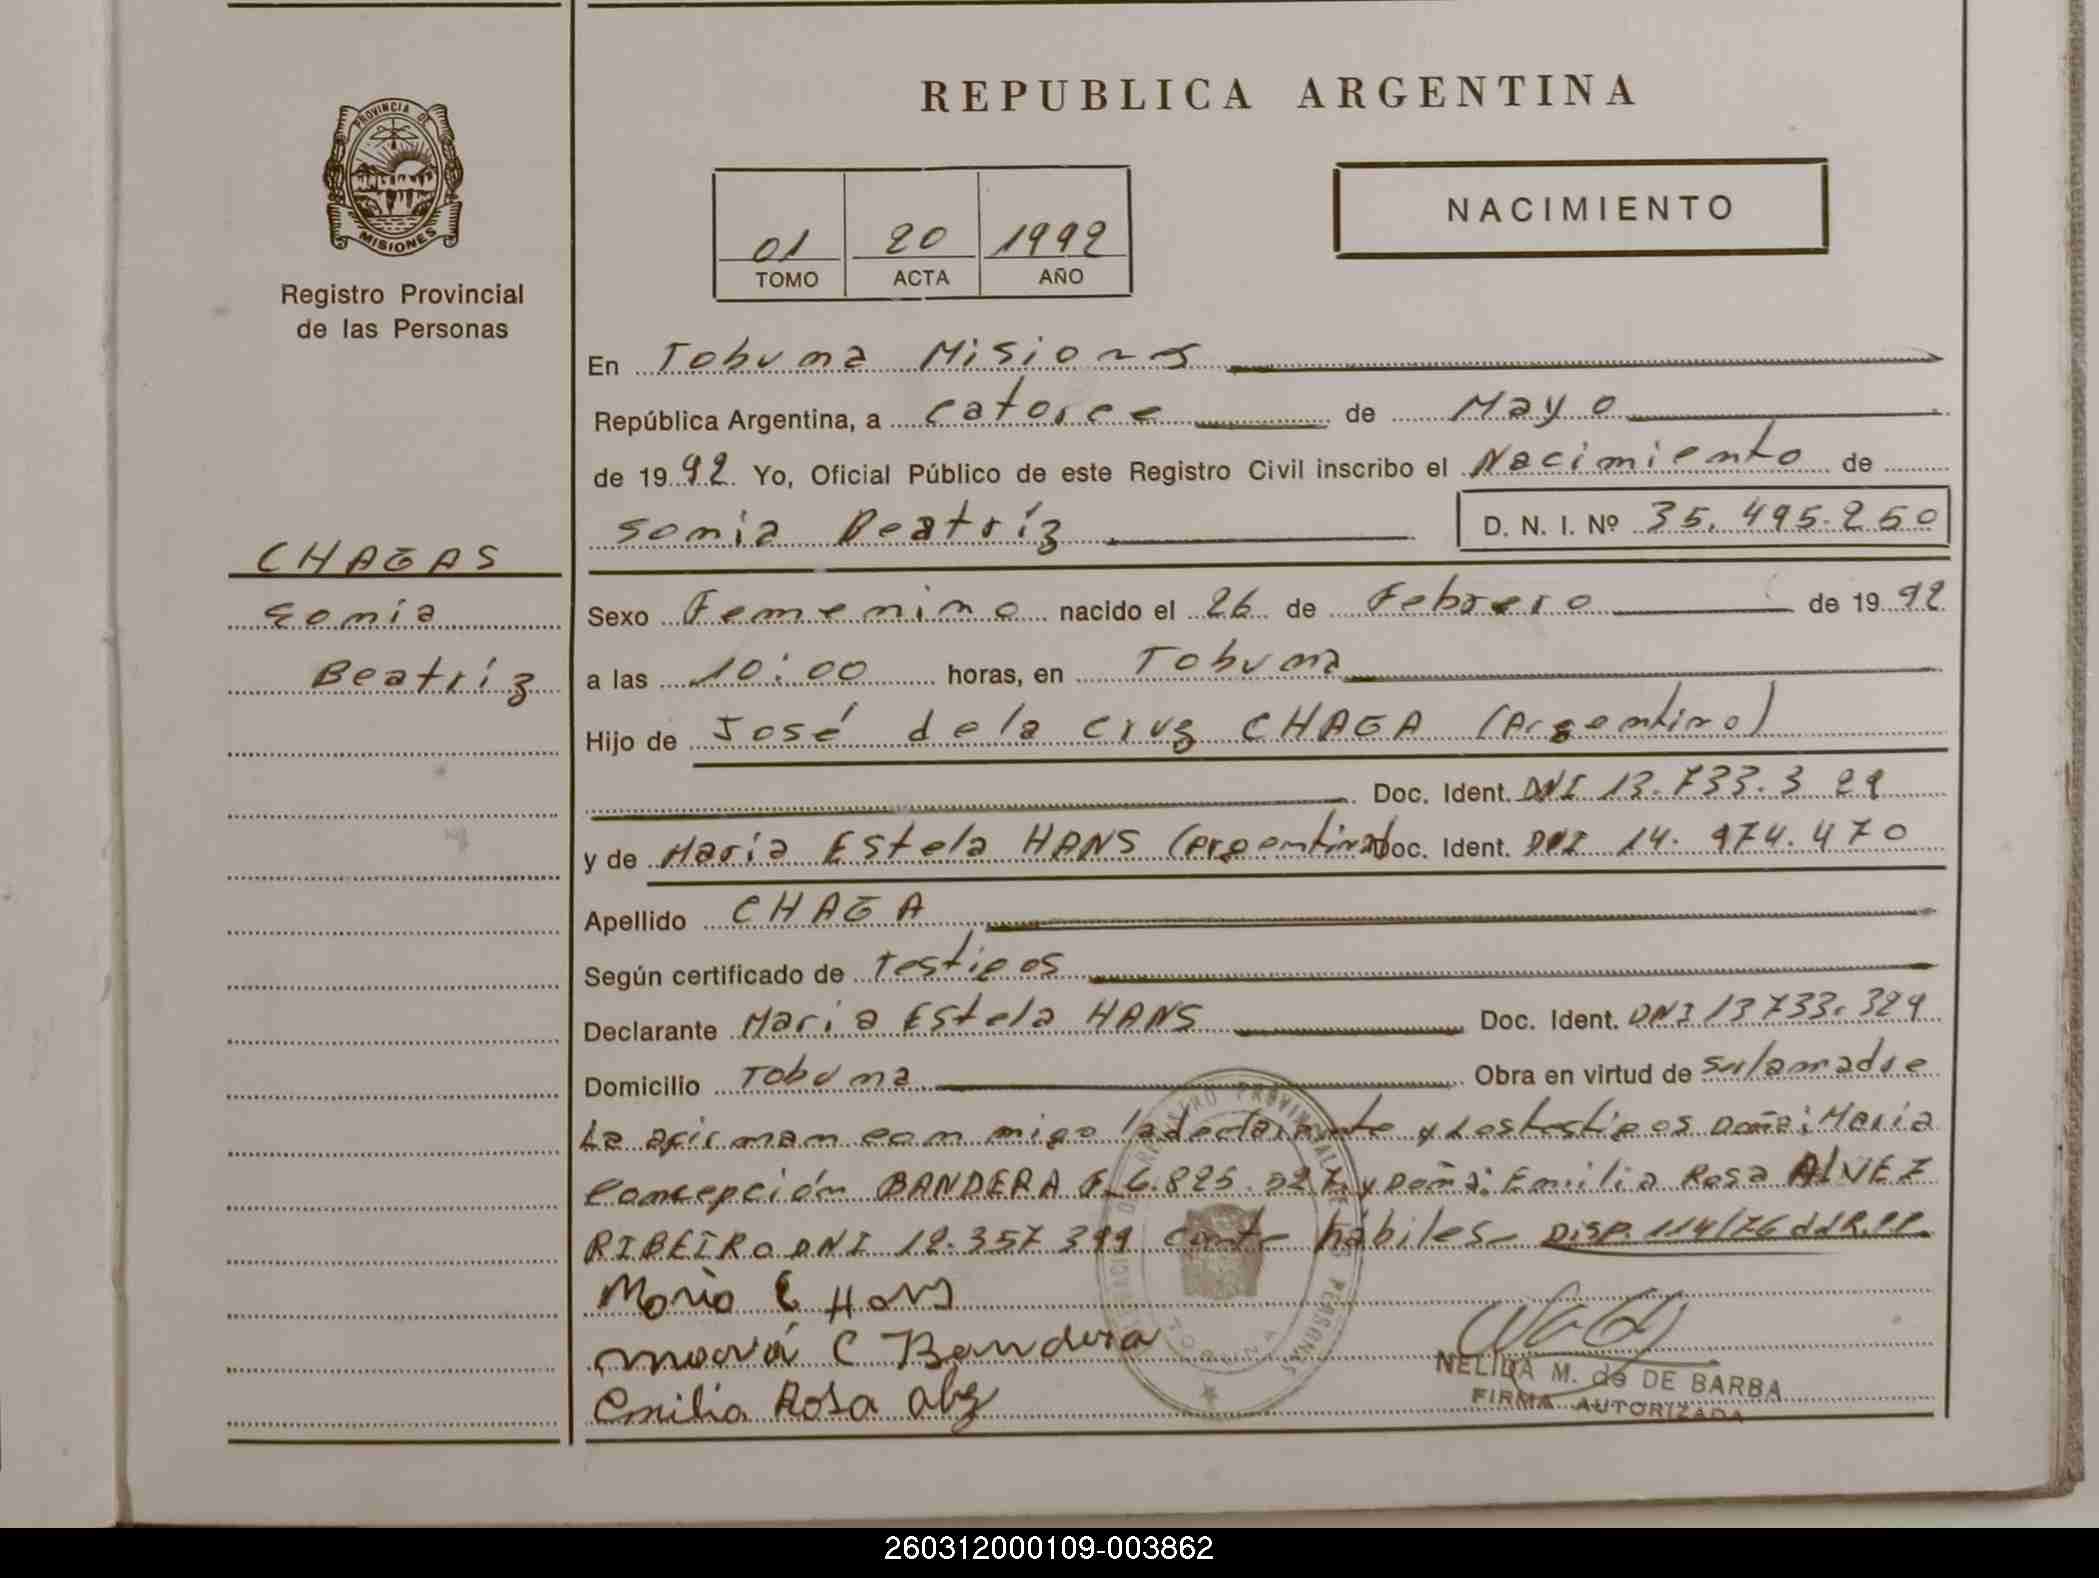 REPUBLICA ARGENTINA
PROVINCIA DE
MISIONES
Registro Provincial
de las Personas
01 20 1992
TOMO ACTA AÑO
NACIMIENTO
En Tobuna Misiones
República Argentina, a catorce de Mayo
de 1992. Yo, Oficial Público de este Registro Civil inscribo el Nacimiento de
Sonia Beatríz D. N. I. Nº 35.495.250
CHAGAS
Sonia
Beatríz
Sexo Femenino nacido el 26 de Febrero de 1992
a las 10:00 horas, en Tobuna
Hijo de José de la Cruz CHAGA (Argentino)
Doc. Ident. DNI 13.733.329
y de María Estela HANS (Argentina) Doc. Ident. DNI 14.974.470
Apellido CHAGA
Según certificado de Testigos
Declarante Maria Estela HANS Doc. Ident. DNI 13733.329
Domicilio Tobuna Obra en virtud de ser la madre
La afirman con migo la declarante y los testigos Doña: Maria
Concepción BANDERA F 6.825.027 y Doña: Emilia Rosa ALVEZ
RIBEIRO DNI 12.357.399 hábiles- DISP. 114/76 d.d.R.P.P.
Maria E Hans
Maria C Bandera
Emilia Rosa
NELIDA M. de DE BARBA
FIRMA AUTORIZADA
260312000109-003862